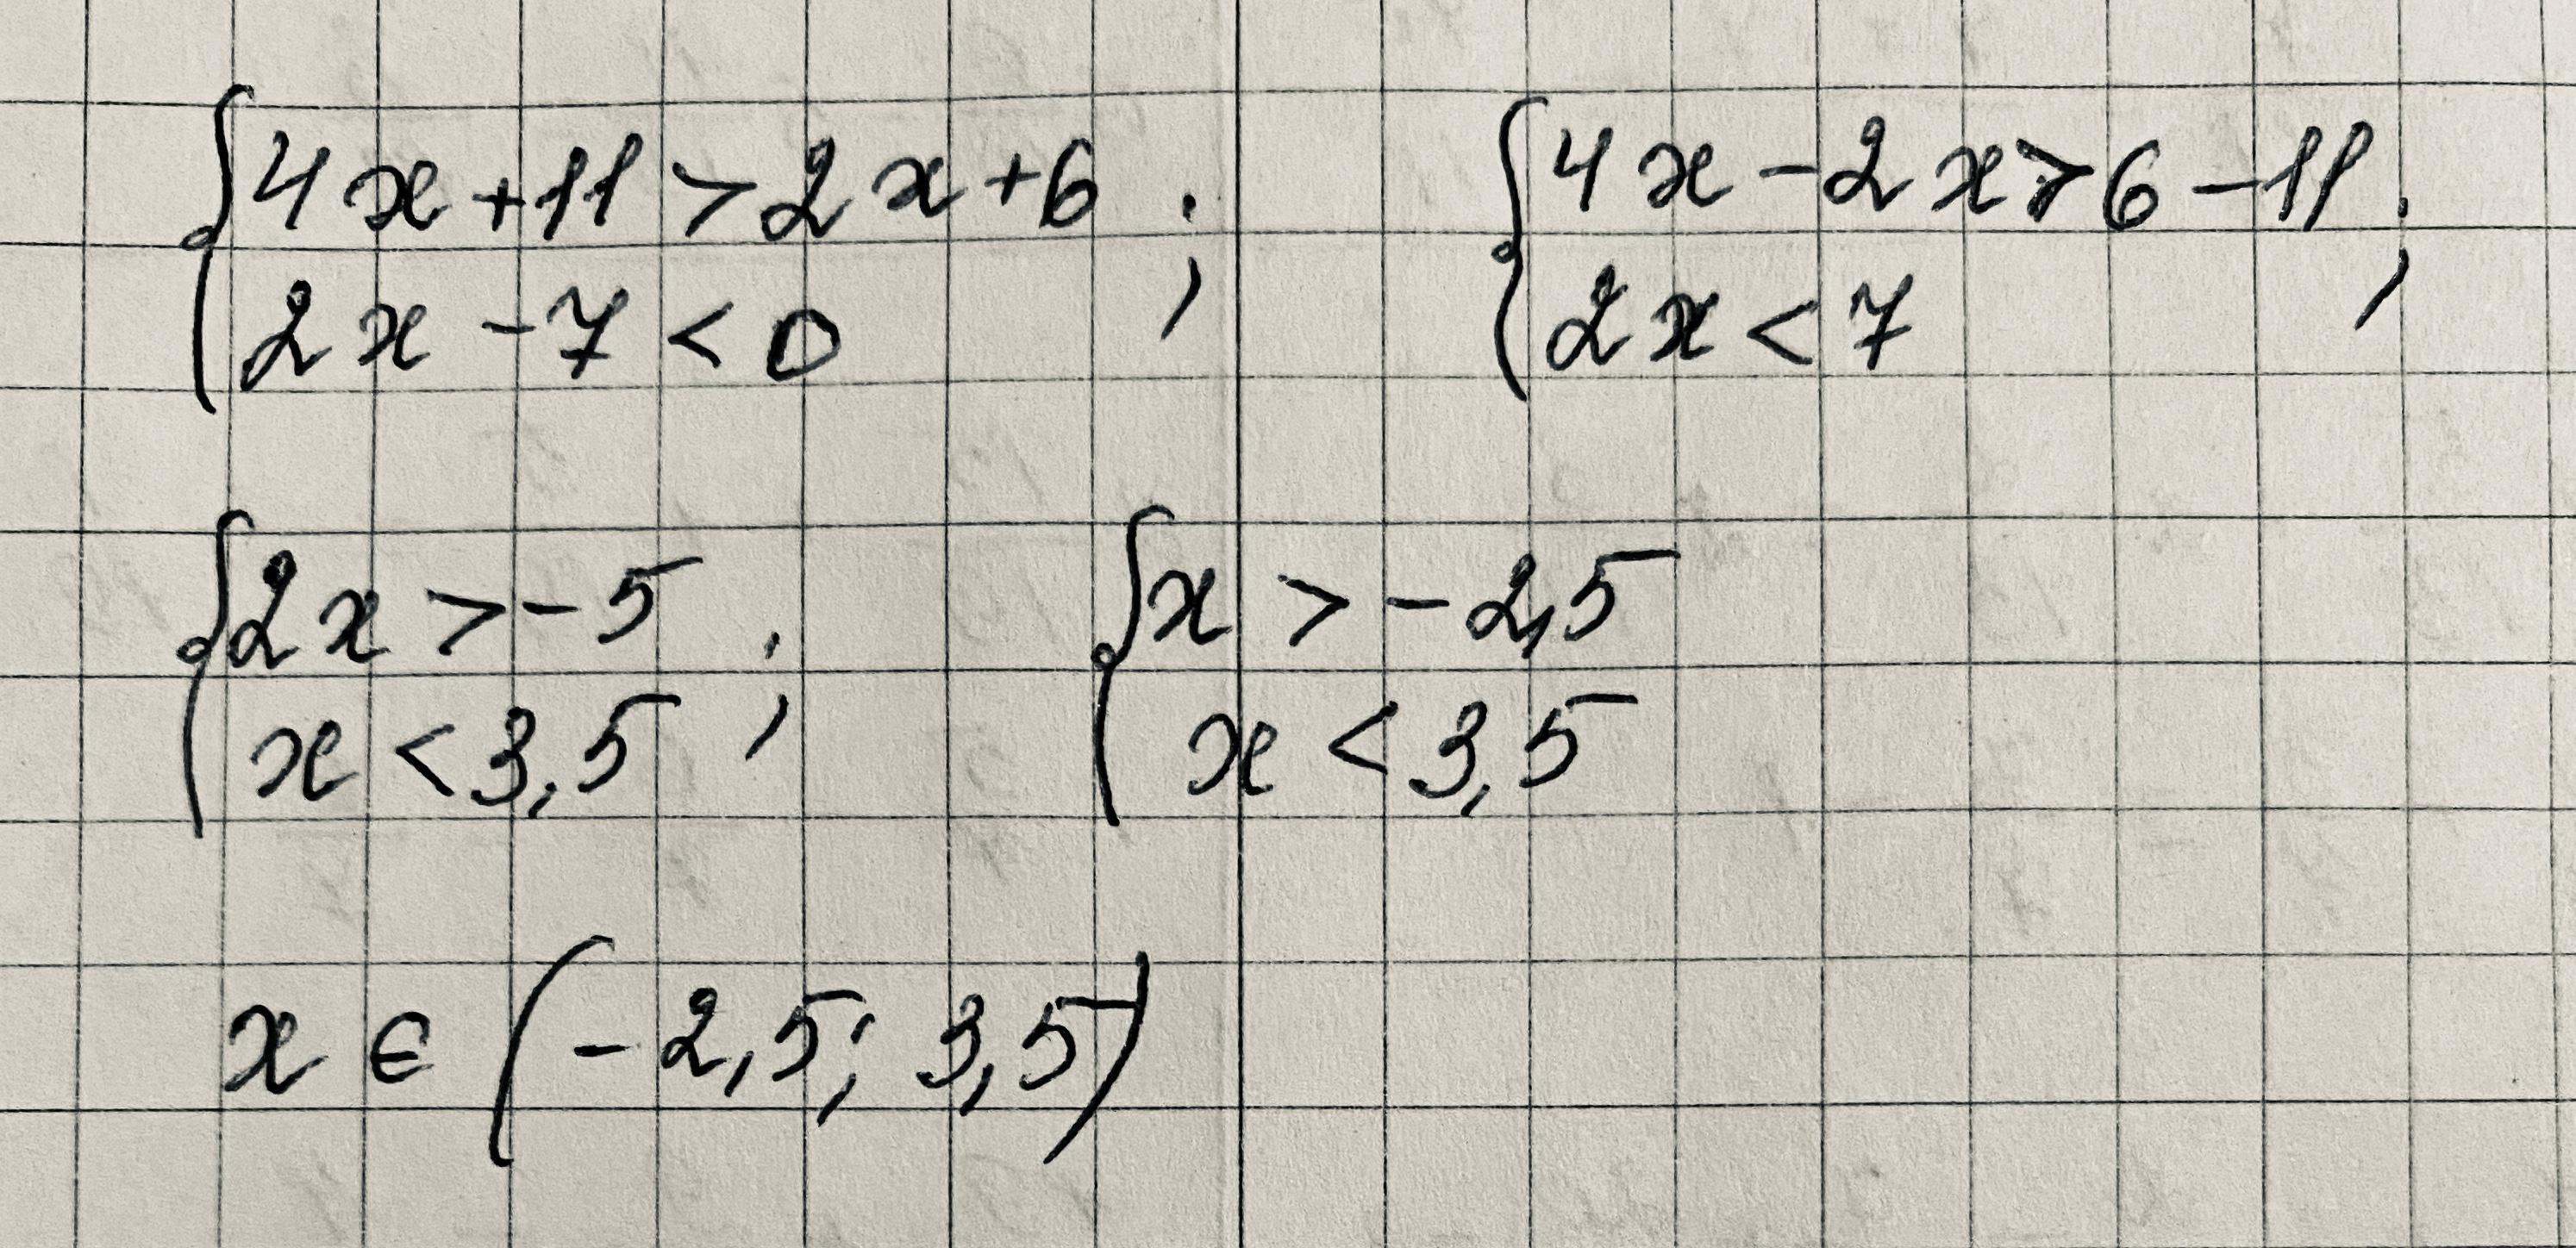 4x+11>2x+6;
2x-7<0
4x-2x>6-11;
2x<7
2x>-5;
x<3,5
x>-2,5
x<3,5
x∈(-2,5; 3,5)